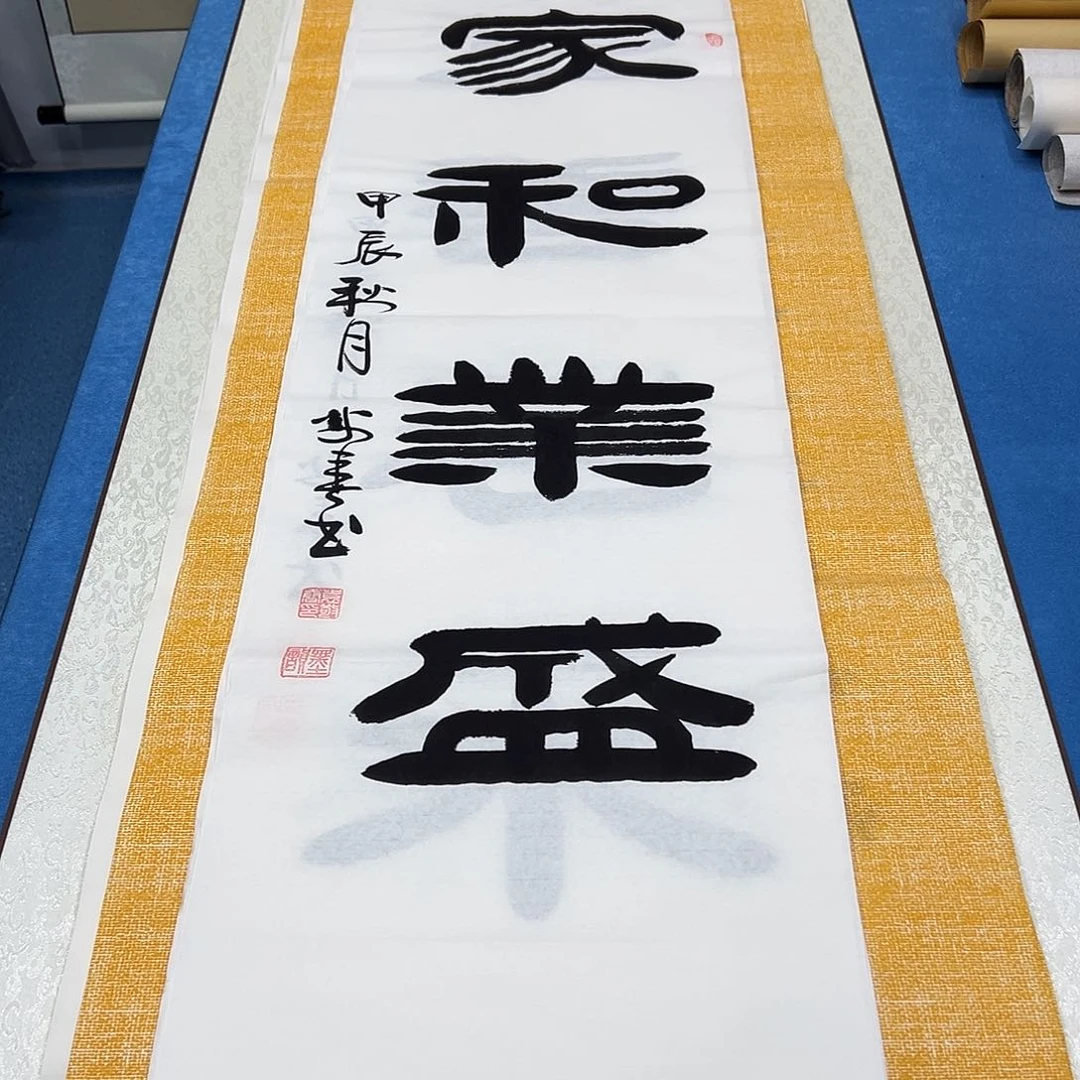 家和業盛
甲辰秋月
春书